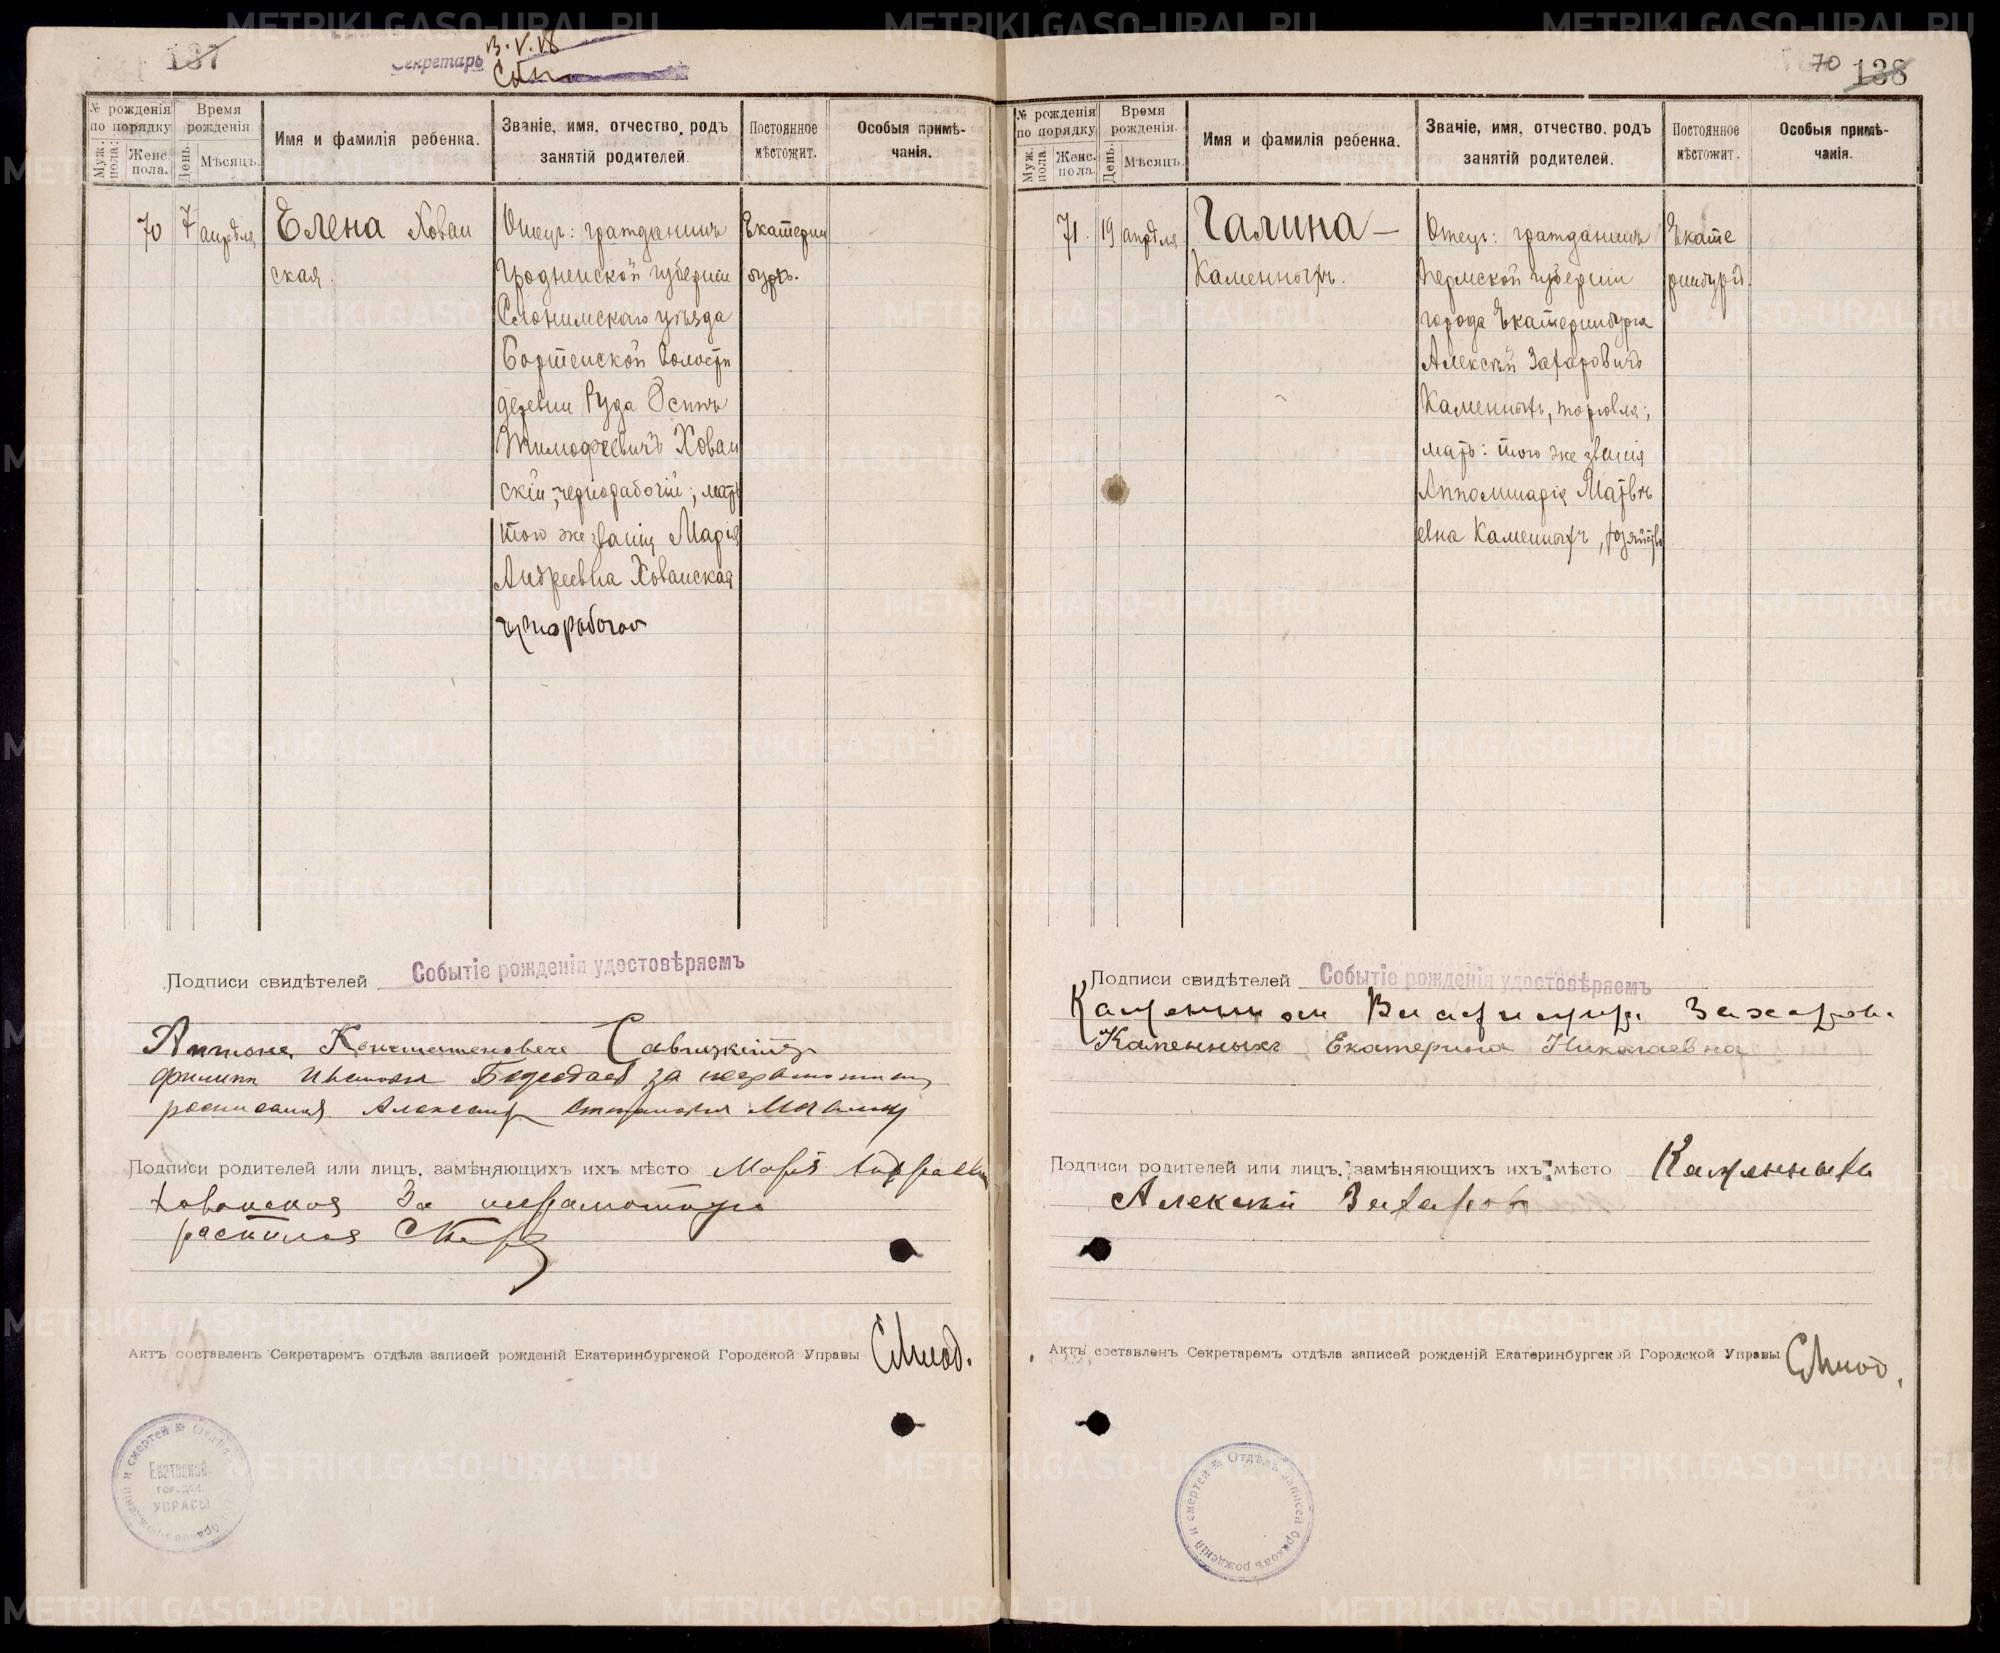 137
Секретарь
13.V.18
№ рожденія по порядку
Муж. пола.
Женс. пола.
Время рожденія
День.
Мѣсяцъ.
Имя и фамилія ребенка.
Званіе, имя, отчество, родъ занятій родителей.
Постоянное мѣстожит.
Особыя примѣчанія.
70
7
апрѣля
Елена Хован
ская.
Отец: гражданинъ
Гродненской губерніи
Слонимскаго уѣзда
Бортенской волости
деревни Руда Осипъ
Тимофеевичъ Хован
скій, чернорабочій; мать
того же званія Марія
Андреевна Хованская
чернорабочая
Екатерин
бургъ.
Подписи свидѣтелей
Событіе рожденія удостовѣряемъ
за неграмотных
росписался Александр
Подписи родителей или лицъ, замѣняющихъ ихъ мѣсто
Марія Андреевна
Хованская За неграмотную
росписался
Актъ составленъ Секретаремъ отдѣла записей рожденій Екатеринбургской Городской Управы
70
138
№ рожденія по порядку
Муж. пола
Женс. пола.
Время рожденія.
День.
Мѣсяцъ.
Имя и фамилія ребенка.
Званіе, имя, отчество, родъ занятій родителей.
Постоянное мѣстожит.
Особыя примѣчанія.
71.
19
апрѣля
Галина —
Каменныхъ.
Отец: гражданинъ
Пермской губерніи
города Екатеринбурга
Алексѣй Захаровичъ
Каменныхъ, торговля;
мать: того же званія
Апполинарія Матвѣ
евна Каменныхъ, хозяйство
Екате
ринбургъ.
Подписи свидѣтелей
Событіе рожденія удостовѣряемъ
Владимир Захаров.
Каменныхъ Екатерина Николаевна
Подписи родителей или лицъ, замѣняющихъ ихъ мѣсто
Каменныхъ
Алексѣй Захаров
Актъ составленъ Секретаремъ отдѣла записей рожденій Екатеринбургской Городской Управы
Отдѣлъ записей браковъ рожденій и смертей
METRIKI.GASO-URAL.RU